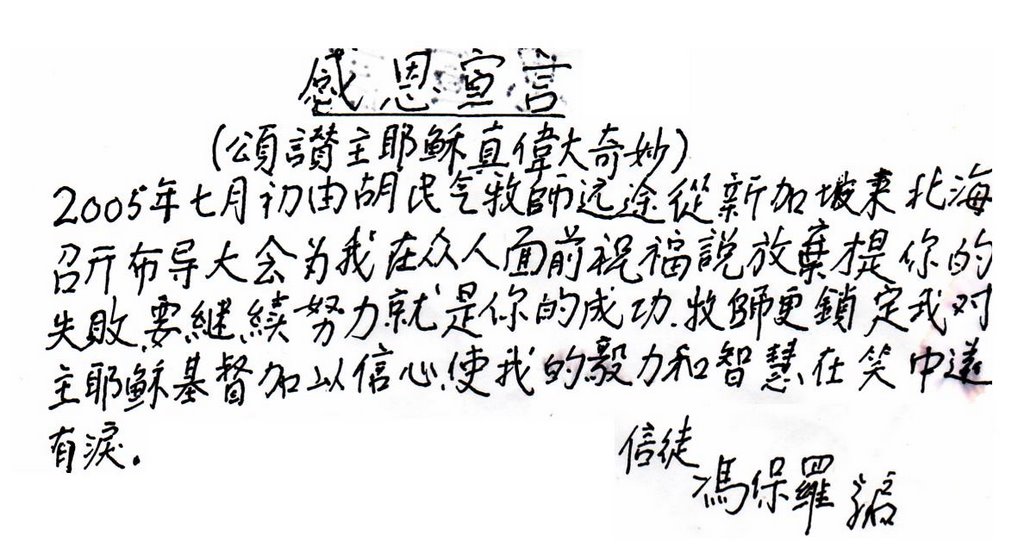 感恩宣言
(頌讚主耶穌真偉大奇妙)
2005年七月初由胡民气牧師远途從新加坡来北海
召开布导大会为我在众人面前祝福説放棄才是你的
失敗,要继續努力就是你的成功.牧師更鎖定我对
主耶穌基督加以信心,使我的毅力和智慧在笑中還
有淚.
信徒
馮保羅